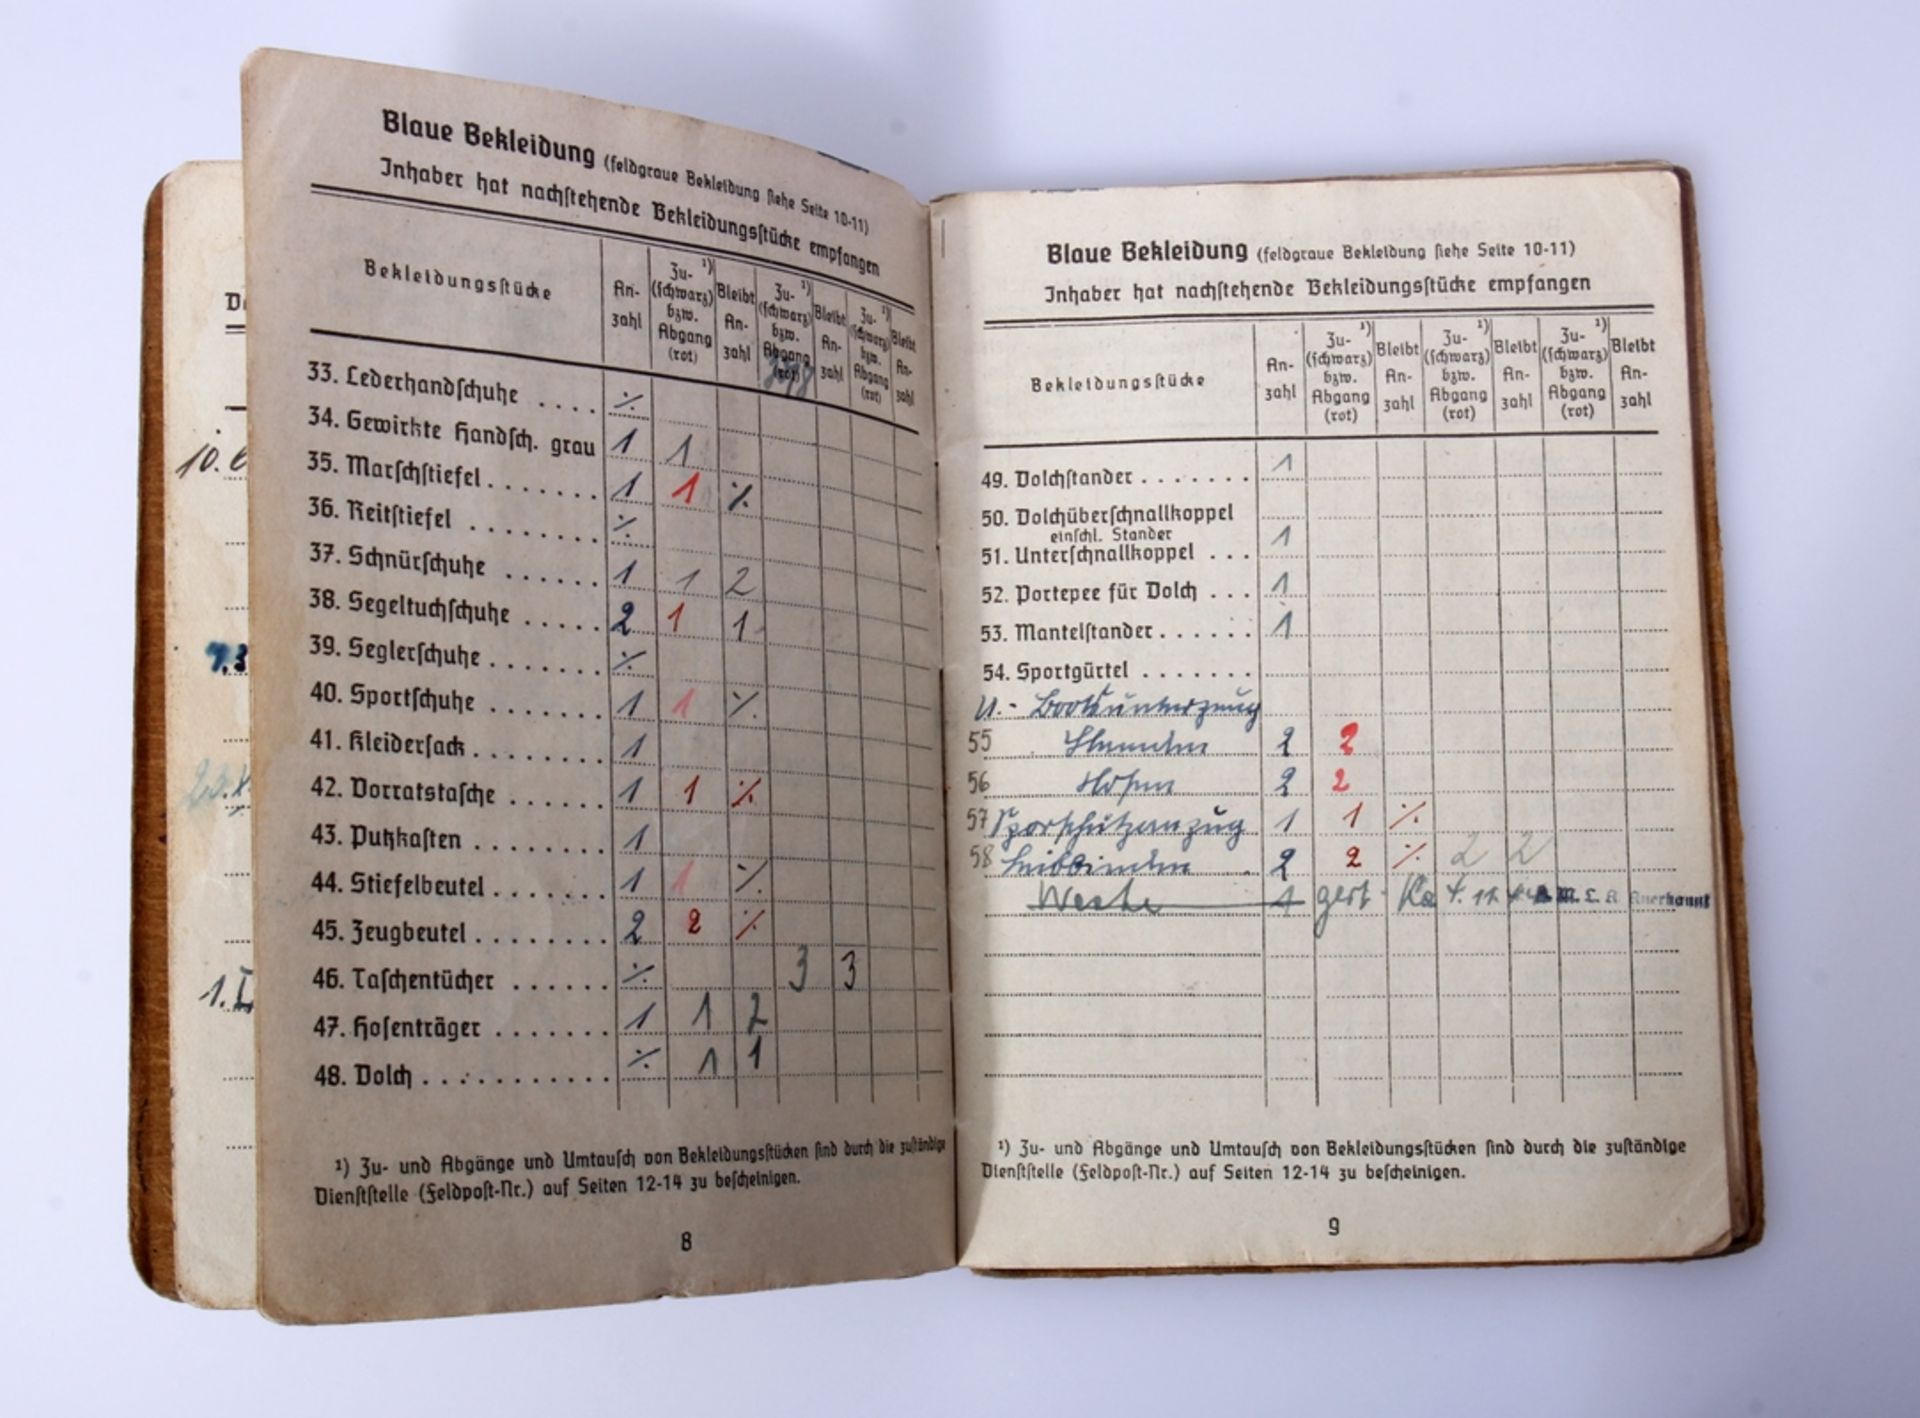 10.
1.
Blaue Bekleidung (feldgraue Bekleidung siehe Seite 10-11)
Inhaber hat nachstehende Bekleidungsstücke empfangen
Bekleidungsstücke An-zahl Zu-¹) (schwarz) bzw. Abgang (rot) Bleibt An-zahl Zu-¹) (schwarz) bzw. Abgang (rot) Bleibt An-zahl Zu-¹) (schwarz) bzw. Abgang (rot) Bleibt An-zahl
33. Lederhandschuhe . . . . ·/·
34. Gewirkte Handsch. grau 1 1
35. Marschstiefel . . . . . . . 1 1 ·/·
36. Reitstiefel . . . . . . . . ·/·
37. Schnürschuhe . . . . . . 1 1 2
38. Segeltuchschuhe . . . . . 2 1 1
39. Seglerschuhe . . . . . . . ·/·
40. Sportschuhe . . . . . . . 1 1 ·/·
41. Kleidersack . . . . . . . . 1
42. Vorratstasche . . . . . . 1 1 ·/·
43. Putzkasten . . . . . . . . 1
44. Stiefelbeutel . . . . . . . 1 1 ·/·
45. Zeugbeutel . . . . . . . . 2 2 ·/·
46. Taschentücher . . . . . . ·/· 3 3
47. Hosenträger . . . . . . . 1 1 2
48. Dolch . . . . . . . . . . . ·/· 1 1
¹) Zu- und Abgänge und Umtausch von Bekleidungsstücken sind durch die zuständige
Dienststelle (Feldpost-Nr.) auf Seiten 12-14 zu bescheinigen.
8
Blaue Bekleidung (feldgraue Bekleidung siehe Seite 10-11)
Inhaber hat nachstehende Bekleidungsstücke empfangen
Bekleidungsstücke An-zahl Zu-¹) (schwarz) bzw. Abgang (rot) Bleibt An-zahl Zu-¹) (schwarz) bzw. Abgang (rot) Bleibt An-zahl Zu-¹) (schwarz) bzw. Abgang (rot) Bleibt An-zahl
49. Dolchstander . . . . . . . 1
50. Dolchüberschnallkoppel
einschl. Stander
51. Unterschnallkoppel . . . 1
52. Portepee für Dolch . . . 1
53. Mantelstander . . . . . . 1
54. Sportgürtel . . . . . . .
U.- Bootsunterzeug
55 Hemden 2 2
56 Hosen 2 2
57 Sporschutzanzug 1 1 ·/·
58 Leibbinden 2 2 ·/· 2 2
Weste 1 M. L. A. Anerkannt
¹) Zu- und Abgänge und Umtausch von Bekleidungsstücken sind durch die zuständige
Dienststelle (Feldpost-Nr.) auf Seiten 12-14 zu bescheinigen.
9